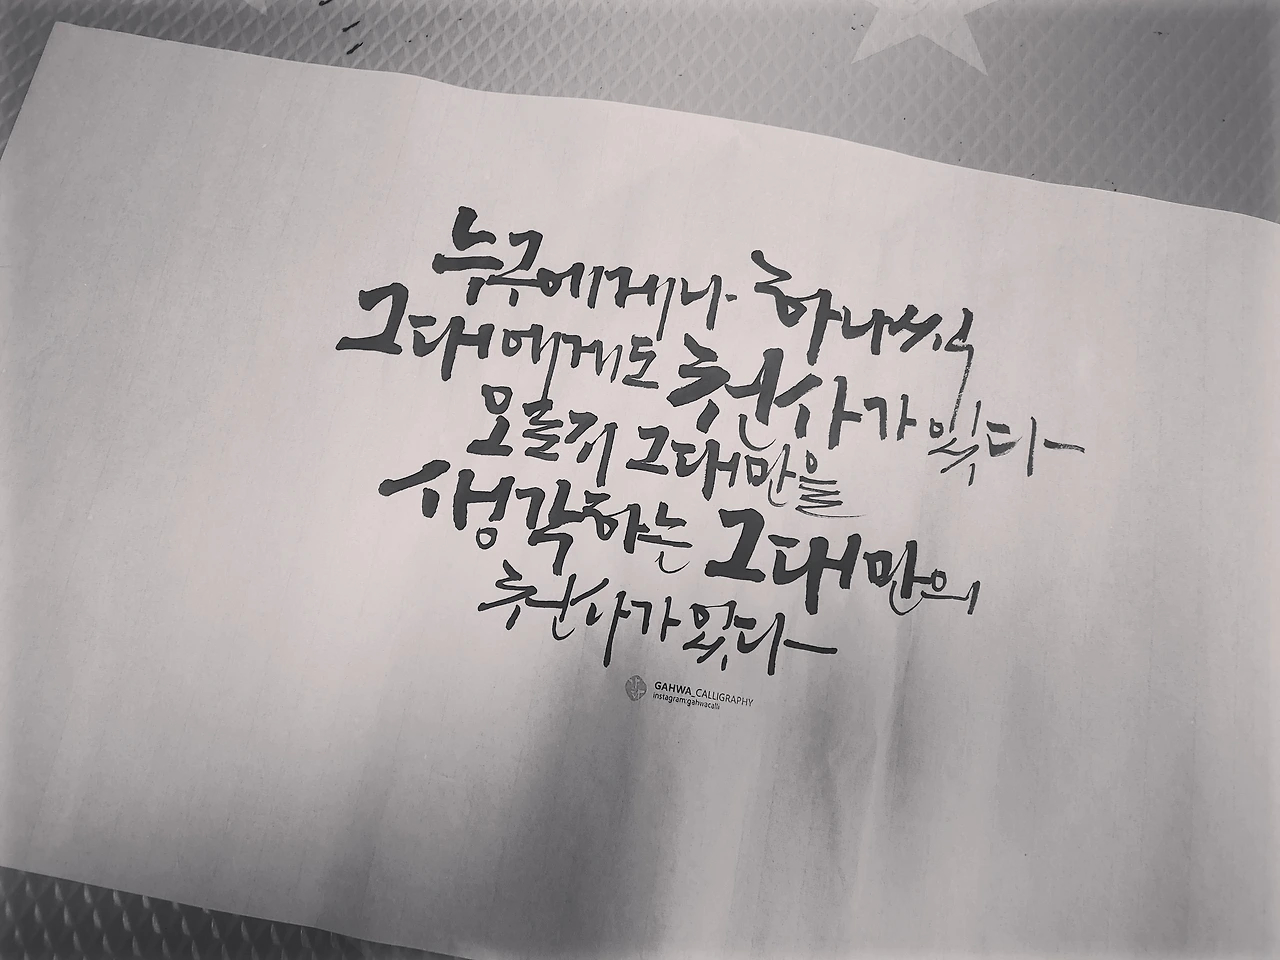 누구에게나 하나씩
그대에게도 천사가 있다
오롯이 그대만을
생각하는 그대만의
천사가 있다
GAHWA_CALLIGRAPHY
instagram:gahwacalli